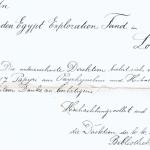 den Egypt Exploration Fund in
Lo
Die unterzeichnete Direktion beehrt sich
Papyri aus Oxyrhynchos und Hibeh
Danke zu bestätigen
Hochachtungsvollst
die Direktion der k. k.
Bibliothek